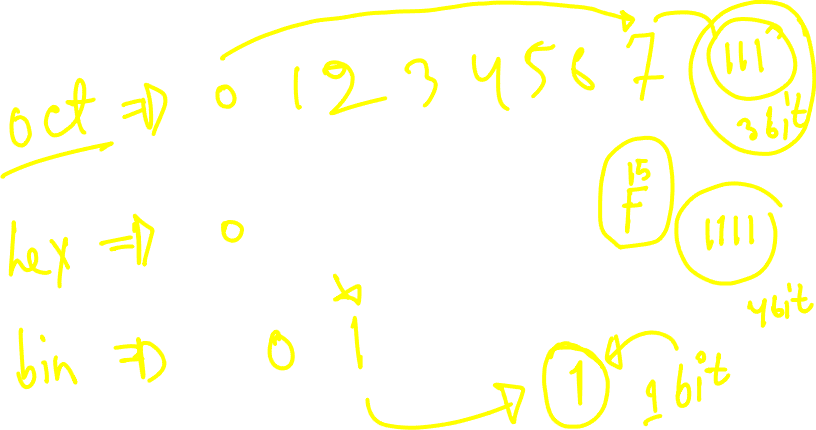 oct ⇒ 0 1 2 3 4 5 6 7 111
3 bit
15
hex ⇒ 0 F 1111
4 bit
bin ⇒ 0 1 1 1 bit